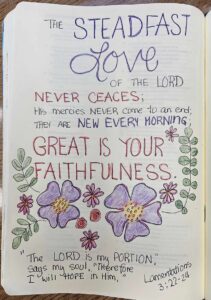 THE STEADFAST
Love
OF THE LORD
NEVER CEACES;
His mercies NEVER come to an end;
They are NEW EVERY MORNING;
GREAT IS YOUR
FAITHFULNESS.
"The LORD is my PORTION,"
says my soul, "Therefore
I will HOPE in Him."
Lamentations
3:22-24